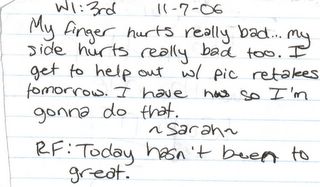 WI: 3rd 11-7-06
My finger hurts really bad... my
side hurts really bad too. I
get to help out w/ pic retakes
tomorrow. I have so I'm
gonna do that.
~Sarah~
RF: Today hasn't been to
great.